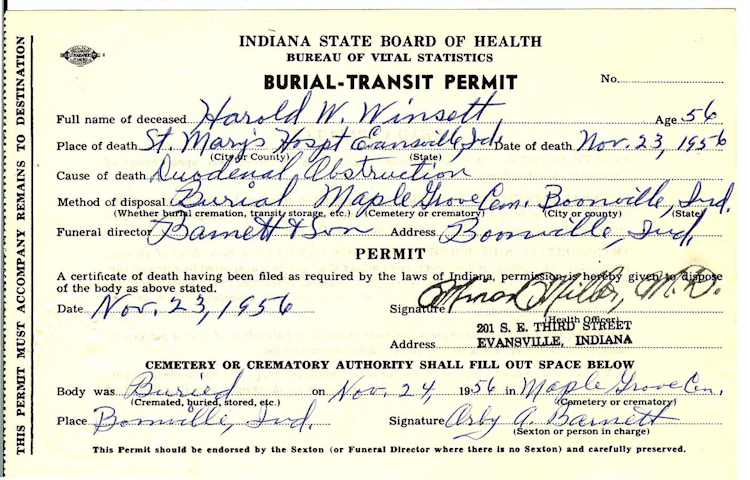 THIS PERMIT MUST ACCOMPANY REMAINS TO DESTINATION
INDIANA STATE BOARD OF HEALTH
BUREAU OF VITAL STATISTICS
BURIAL-TRANSIT PERMIT
No.
Full name of deceased Harold W. Winsett Age 56
Place of death St. Mary's Hospt Evansville, Ind. Date of death Nov. 23, 1956
(City or County) (State)
Cause of death Duodenal Obstruction
Method of disposal Burial Maple Grove Cem. Boonville, Ind.
(Whether burial cremation, transit storage, etc.) (Cemetery or crematory) (City or county) (State)
Funeral director Barnett & Son Address Boonville, Ind.
PERMIT
A certificate of death having been filed as required by the laws of Indiana, permission is hereby given to dispose
of the body as above stated.
Date Nov. 23, 1956 Signature Miller, M.D.
(Health Officer)
201 S. E. THIRD STREET
Address EVANSVILLE, INDIANA
CEMETERY OR CREMATORY AUTHORITY SHALL FILL OUT SPACE BELOW
Body was Buried on Nov. 24, 1956 in Maple Grove Cem.
(Cremated, buried, stored, etc.) (Cemetery or crematory)
Place Boonville, Ind. Signature Orby A. Barnett
(Sexton or person in charge)
This Permit should be endorsed by the Sexton (or Funeral Director where there is no Sexton) and carefully preserved.